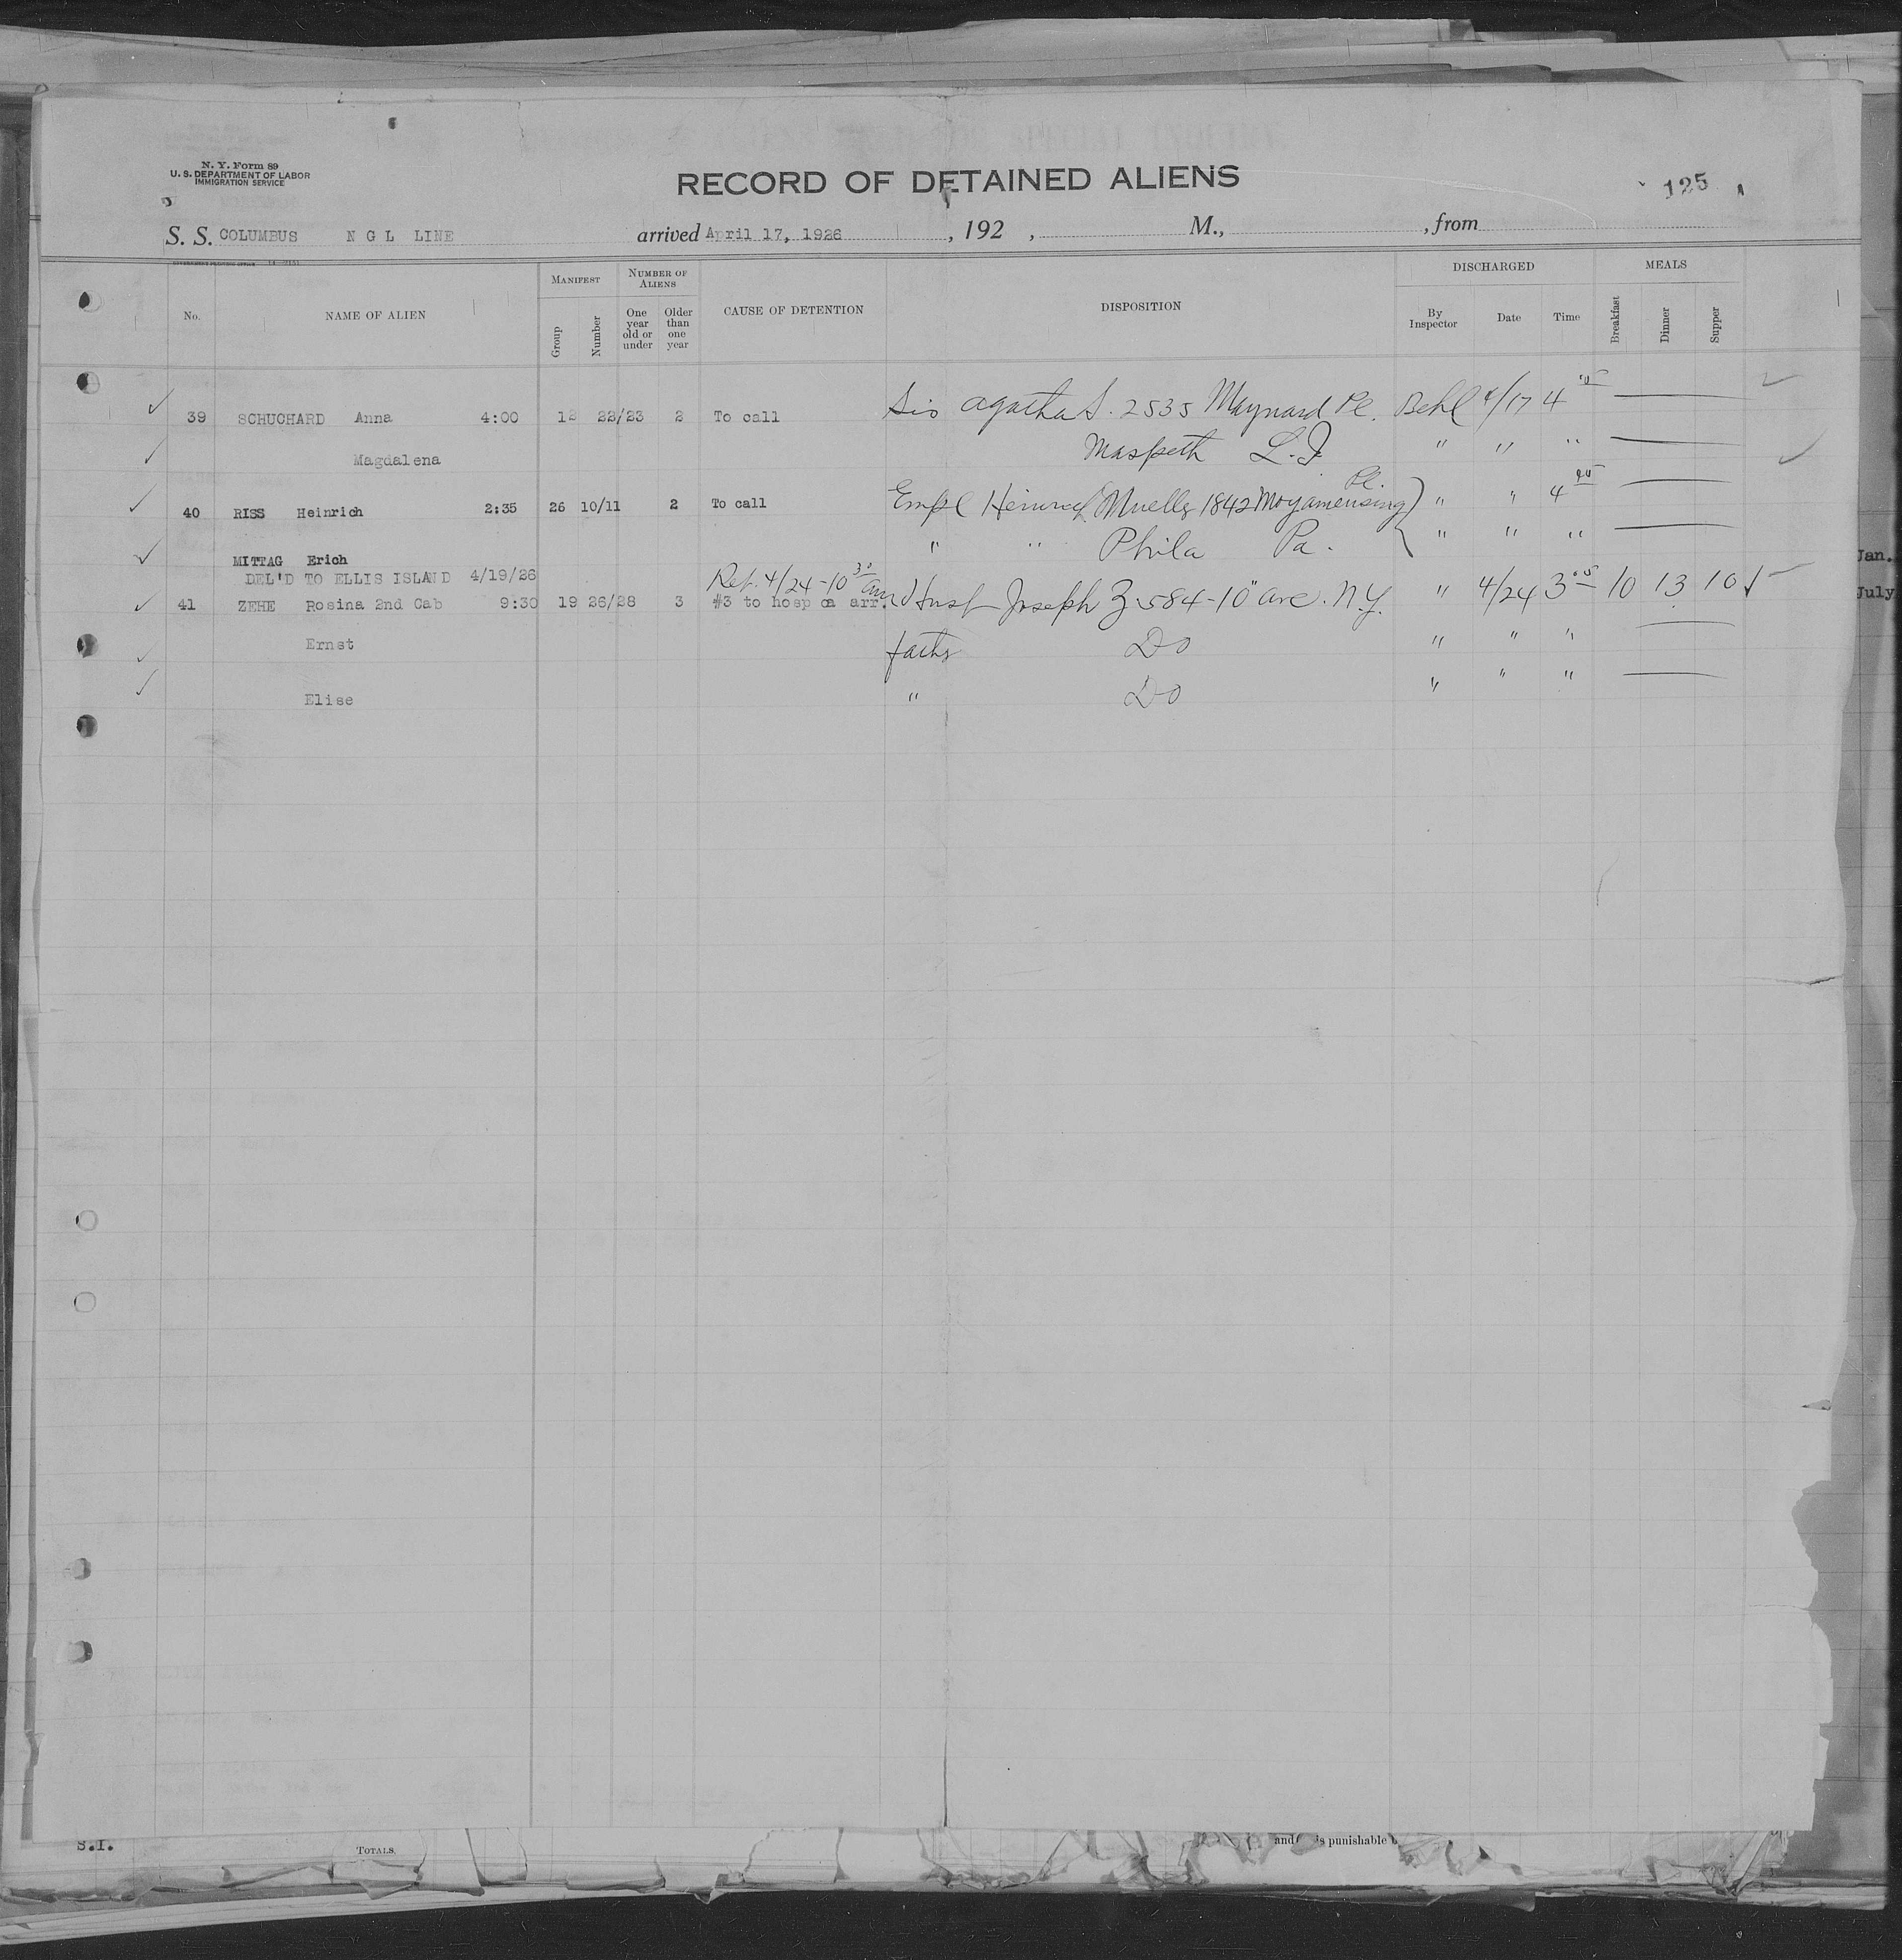 N. Y. Form 89
U. S. DEPARTMENT OF LABOR
IMMIGRATION SERVICE
RECORD OF DETAINED ALIENS
125
S. S. COLUMBUS N G L LINE arrived April 17, 1926, 192 , M., , from
MANIFEST NUMBER OF ALIENS DISCHARGED MEALS
No. NAME OF ALIEN Group Number One year old or under Older than one year CAUSE OF DETENTION DISPOSITION By Inspector Date Time Breakfast Dinner Supper
39 SCHUCHARD Anna 4:00 12 22/23 2 To call Sis Agatha S. 2535 Maynard Pl. Behl 4/17 4
Magdalena Maspeth L.I. " " "
40 RISS Heinrich 2:35 26 10/11 2 To call Empl Heinrich Mueller 1842 Moyamensing Pl. " " 4
MITTAG Erich " " Phila Pa. " " "
DEL'D TO ELLIS ISLAND 4/19/26 Ret. 4/24-10 30 am
41 ZEHE Rosina 2nd Cab 9:30 19 26/28 3 #3 to hosp on arr. Husb Joseph Z. 584-10" Ave. N.Y. " 4/24 3 10 13 10
Ernst father Do " " "
Elise " Do " " "
Jan.
July
S.I.
TOTALS
and is punishable